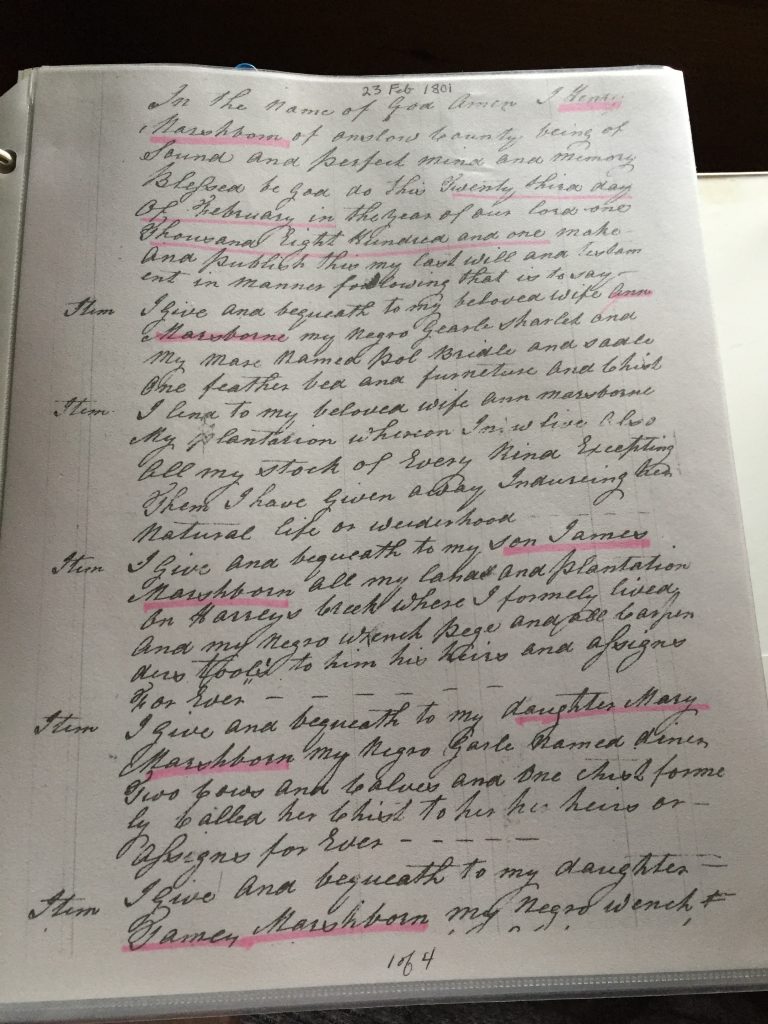 23 Feb 1801
In the Name of God Amen I Henry
Marshborn of onslow County being of
Sound and perfect mind and memory
Blessed be god do this Twenty third day
Of February in the year of our lord one
Thousand Eight Hundred and one make
And publish this my last will and Testam
ent in manner following that is to say
Item I Give and bequeath to my beloved wife Ann
Marsborne my Negro Gearle Sharlet and
My mare Named Pol Bridle and sadle
One feather bed and furneture and Chist
Item I lend to my beloved wife ann marsborne
My plantation whereon I now live Also
All my stock of Every Kind Excepting
Them I have Given away Indureing her
Natural life or weiderhood
Item I Give and bequeath to my son James
Marshborn all my lands and plantation
On Harreys Creek where I formely lived
And my Negro wench Pege and all Carpen
ders tools to him his heirs and assigns
For Ever
Item I Give and bequeath to my daughter Mary
Marshborn my Negro Garle Named diner
Two Cows and Calves and One chist forme
ly Called her Chist to her heirs or
Assigns for Ever
Item I Give And bequeath to my daughter
Tamey Marshborn my Negro wench
1 of 4